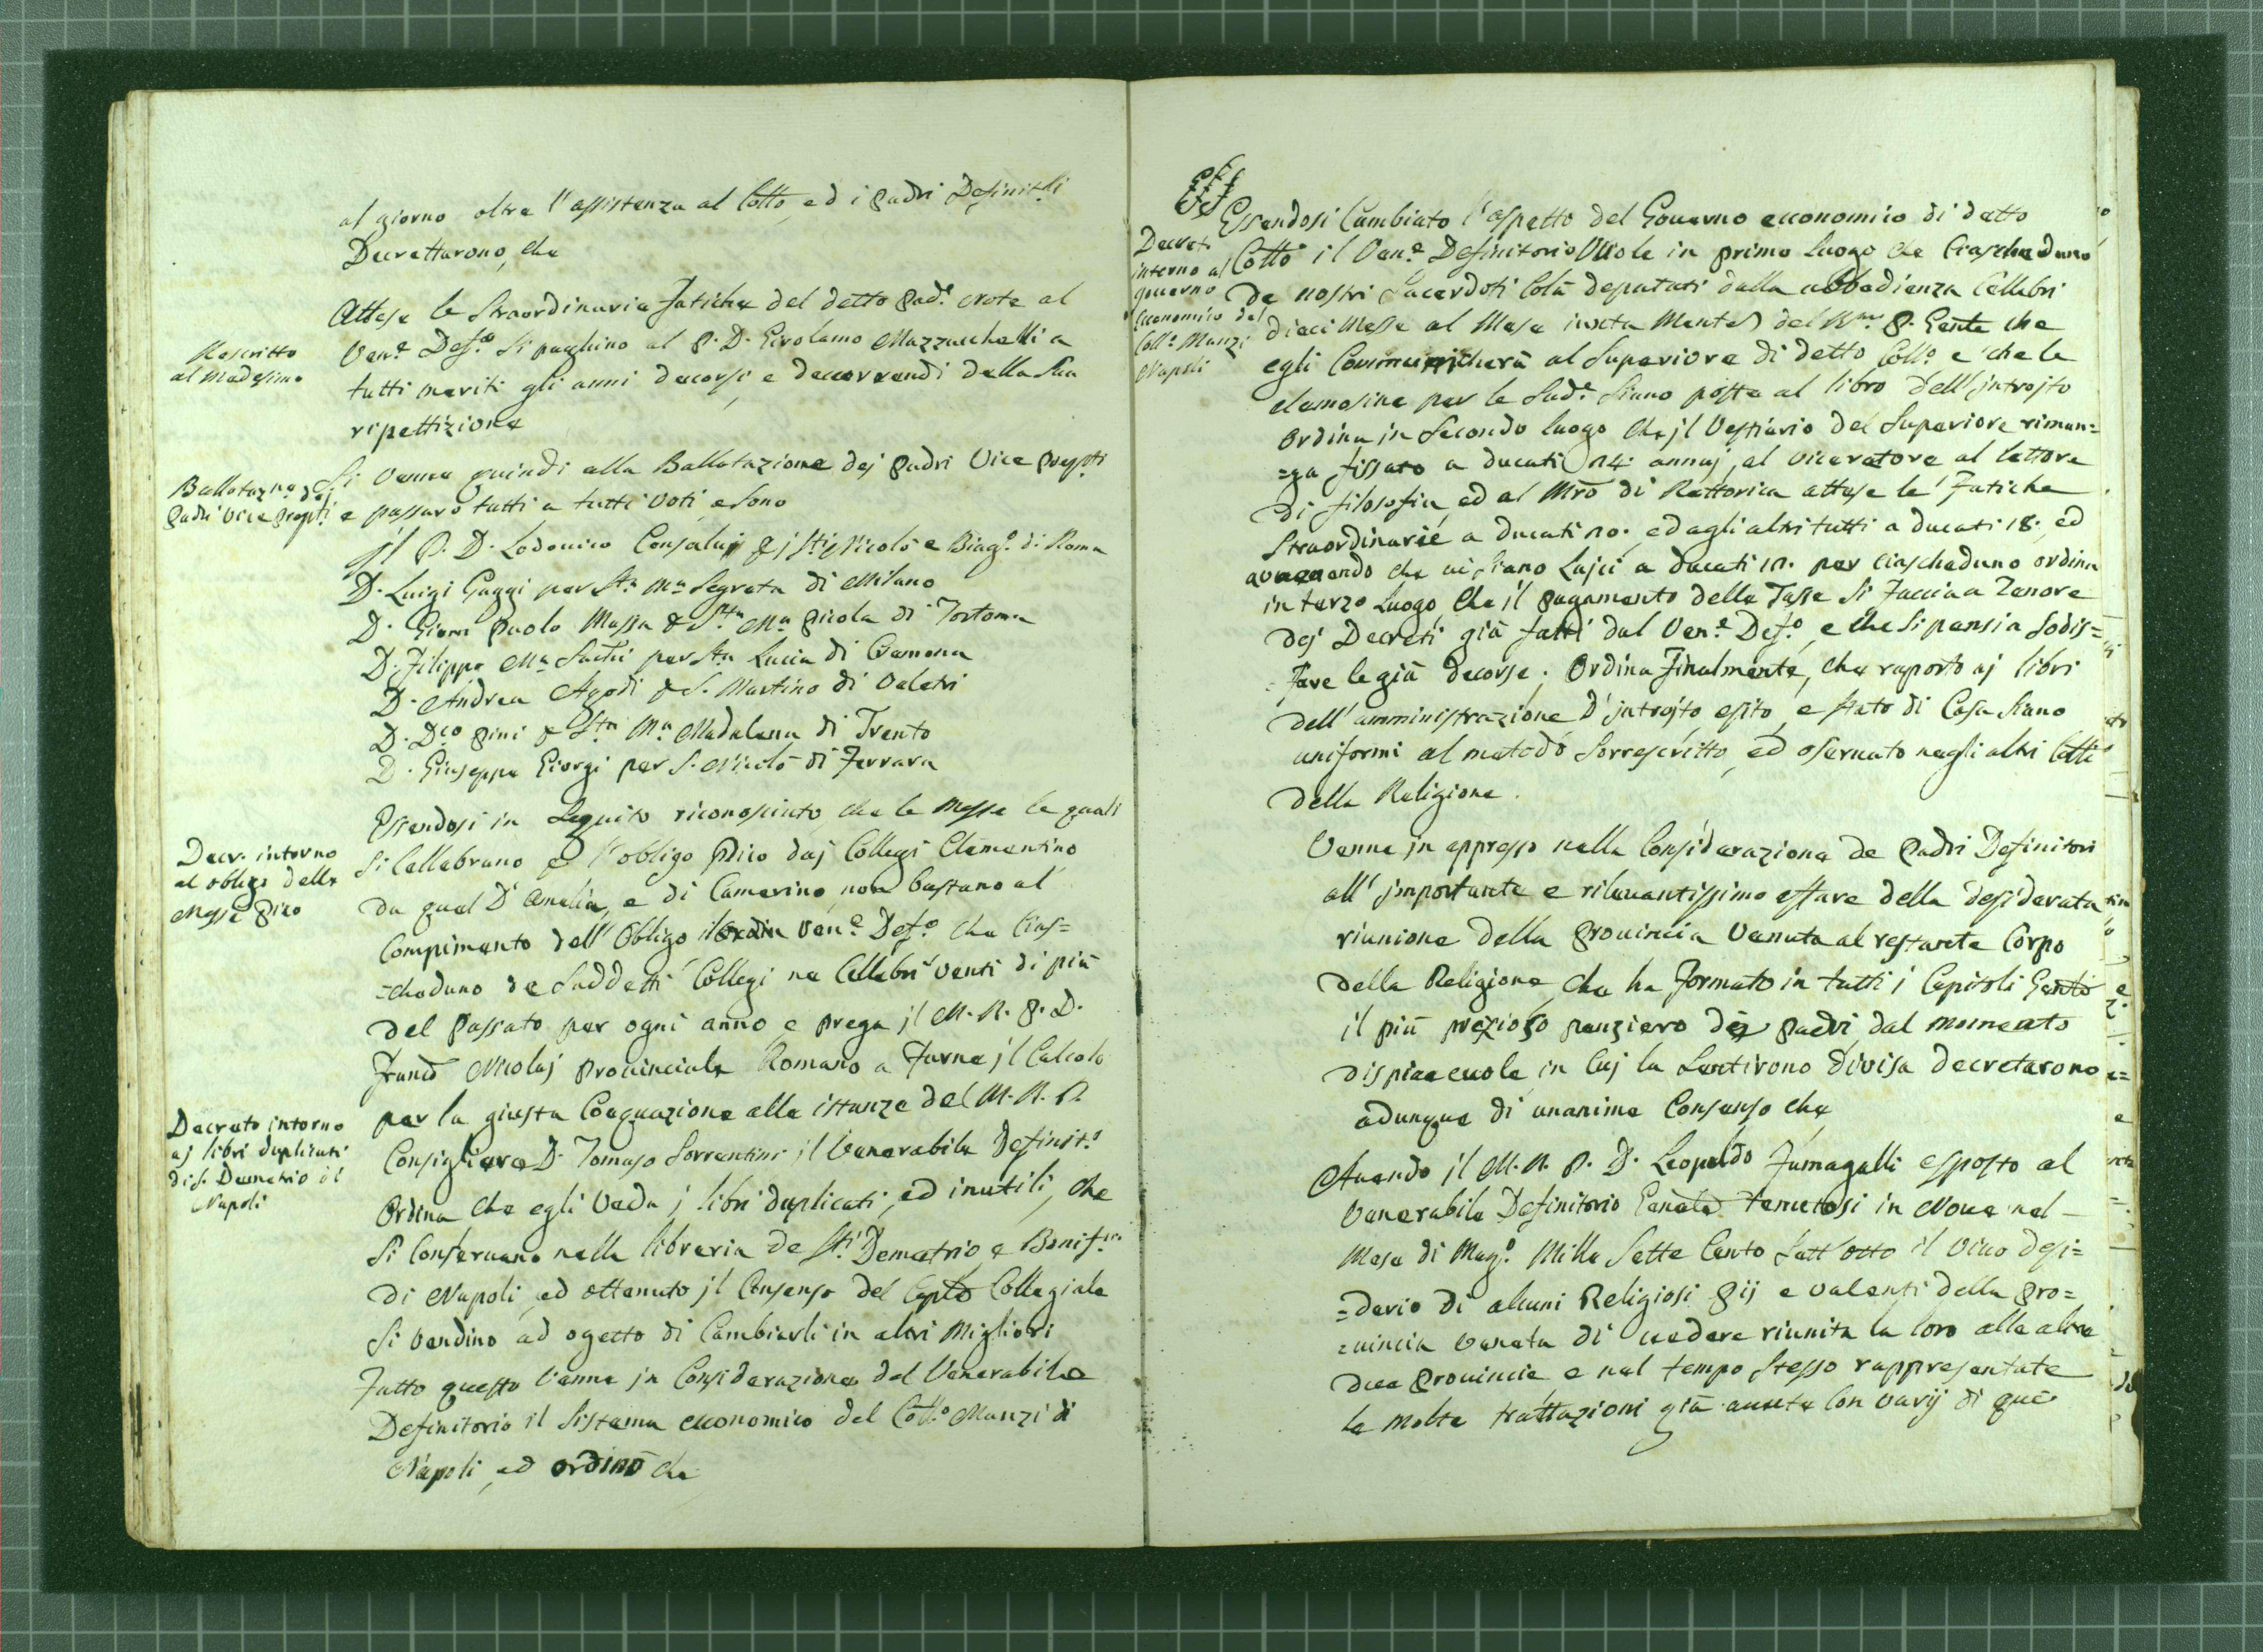 al giorno oltre l'assistenza al Collo, ed i Padri Definit:ri
Decrettarono, che
Rescritto
al Medesimo
Attese le Straordinarie fatiche del detto Pad:e note al
Ven:e Def:o si paghino al P. D. Girolamo Mazzucchelli a
tutti meriti gli anni decorsi, e decorrendi della Sua
ripettizione
Ballotaz:ne dej
Padri Vice Prep:ti
Si venne quindi alla Ballotazione dej Padri Vice Prep:ti
e passaro tutti a tutti voti, e sono
jl P. D. Lodovico Consalvi p j S:ti Nicolò e Biag:o di Roma
D. Luigi Gaggi per S:ta M:a Segreta di Milano
D. Giam Paolo Massa p S:ta M:a Picola di Tortona
D. Filippo M:a per S:ta Lucia di Cremona
D. Andrea Agodi p S. Martino di Veletri
D. D:co Pini p S:ta M:a Madalena di Trento
D. Giuseppe Giorgi per S. Nicolò di Ferrara
Decr. intorno
al obligo delle
Messe Pico
Essendosi in Seguito riconosciuto, che le Messe le quali
si Cellebrano p l'obligo Pico daj Collegi Clementino
da quel D'Amelia, e di Camerino, non bastano al
Compimento dell'Obligo il Ven:e Def:o che Cias=
=cheduno de Suddetti Collegi ne Cellebri venti di più
del Passato per ogni anno, e prega jl M. R. P. D.
Nicolaj Provinciale Romano a Farne jl Calcolo
Decreto intorno
aj libri duplicati
di S. Demetrio di
Napoli
per la giusta Coequazione alle istanze del M. R. P.
Consigliere D. Tomaso Sorrentini jl Venerabile Definit:o
Ordina che egli veda j libri duplicati, ed inutili, che
si Conservano nella libreria de S:ti Demetrio e Bonif:o
di Napoli, ed ottenuto jl Consenso del Caplo Collegiale
si vendino ad ogetto di Cambiarli in altri Migliori
Fatto questo Venne jn Considerazione del Venerabile
Definitorio il Sistema economico del Coll:o Manzi di
Napoli, ed ordinò che
Decret.
intorno al
governo
Economico del
Coll:o Manzi
Napoli
Essendosi Cambiato l'aspetto del Governo economico di detto
Collo il Ven:e Definitorio Vuole in primo luogo che Ciascheduno
de nostri Sacerdoti Colà deputati dalla obbedienza Cellebri
dieci Messe al Mese iuxta Mentem del R:mo P. Genle che
egli Communicherà al Superiore di detto Coll:o e che le
elemosine per le Sud:e siano poste al libro dell'jntrojto
Ordina in Secondo luogo che jl Vestiario del Superiore riman=
=ga fissato a ducati 24 annuj, al vicerettore al lettore
di filosofia, ed al Mro di Rettorica attese le Fatiche
Straordinarie a ducati 20. ed agli altri tutti a ducati 18. ed
avvenendo che vi siano Lajci a ducati 12. per ciascheduno ordina
in terzo luogo, che il pagamento delle Tasse si Faccia a Tenore
dej Decreti già fatti dal Ven:e Def:o, e che si pensi a Sodis=
=fare le già decorse. Ordina Finalmente, che raporto aj libri
dell'amministrazione D'jntrojto esito, e stato di Casa siano
uniformi al metodo sorrescritto, ed osservato negli altri Colli
della Religione.
Venne jn appresso nella Considerazione de Padri Definitori
all'jmportante e rilevantissimo affare della desiderata
riunione della Provincia Veneta al restante Corpo
della Religione, che ha formato in tutti i Capitoli Genli
il più prezioso penziero dej Padri dal momento
dispiacevole in Cuj la Sentirono divisa decretarono
adunque di unanime Consenso che
Avendo jl M. R. P. D. Leopoldo Fumagalli esposto al
Venerabile Definitorio Genele tenutosi in Nove nel
Mese di Mag:o Mille Sette Cento Sett'otto il vivo desi=
=derio di alcuni Religiosi Pij e valenti della Pro=
=vincia Veneta di vedere riunita la loro alle altre
due Provincie e nel tempo stesso rappresentate
le molte trattazioni già avute Con varij di que